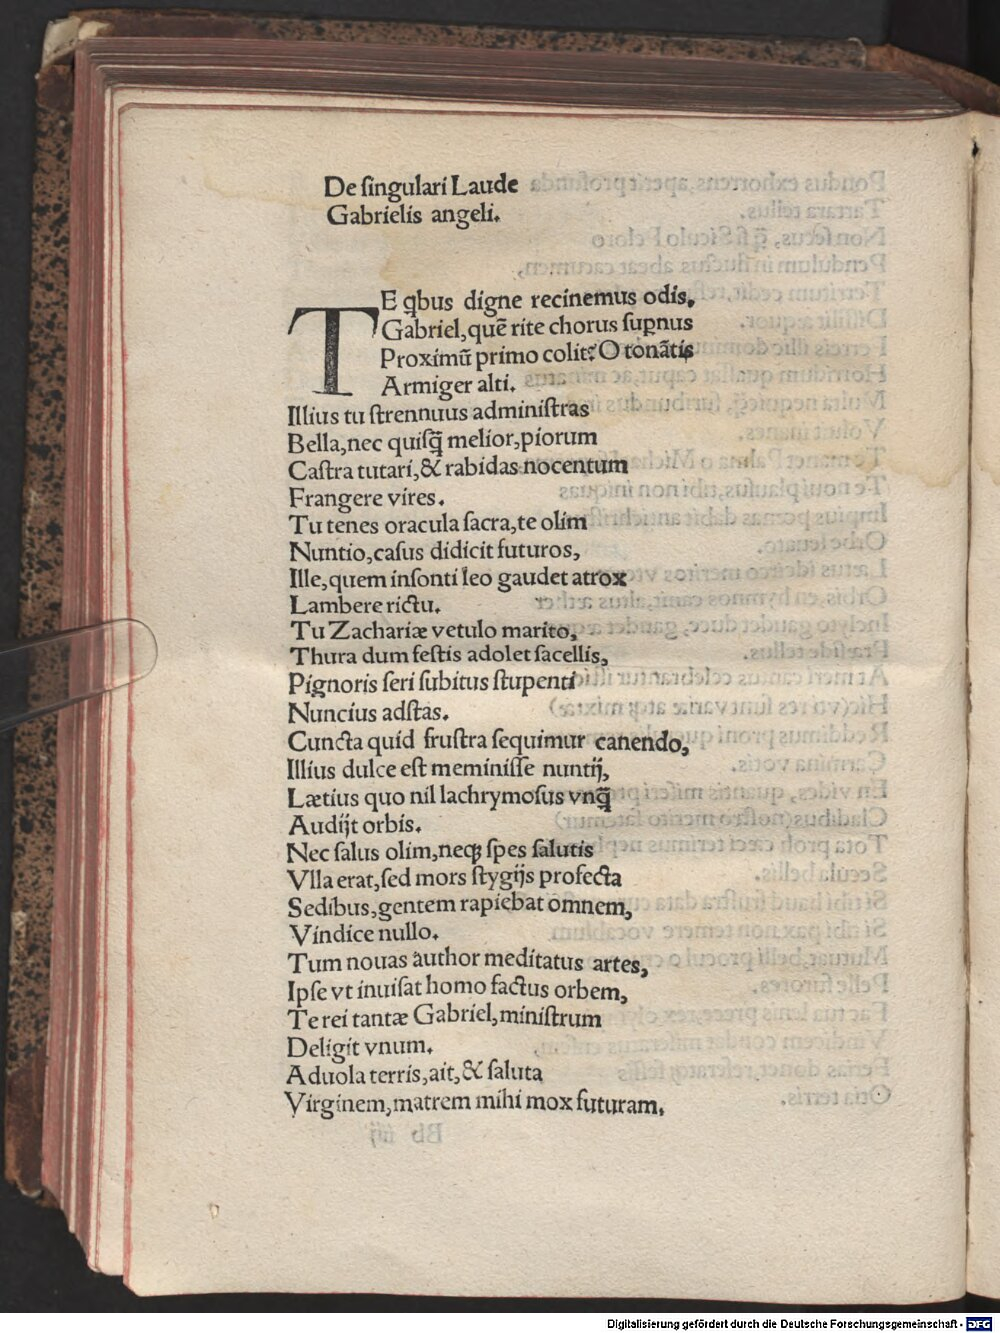 De ſingulari Laude
Gabrielis angeli.
TE qbus digne recinemus odis,
Gabriel, quē rite chorus ſuꝑnus
Proximū primo colit? O tonātis
Armiger alti.
Illius tu ſtrennuus adminiſtras
Bella, nec quiſq̄ melior, piorum
Caſtra tutari, & rabidas nocentum
Frangere vires.
Tu tenes oracula ſacra, te olim
Nuntio, caſus didicit futuros,
Ille, quem inſonti leo gaudet atrox
Lambere rictu.
Tu Zachariæ vetulo marito,
Thura dum feſtis adolet ſacellis,
Pignoris ſeri ſubitus ſtupenti
Nuncius adſtas.
Cuncta quid fruſtra ſequimur canendo,
Illius dulce eſt meminiſſe nuntij,
Lætius quo nil lachrymoſus vnq̄
Audijt orbis.
Nec ſalus olim, neqꝫ ſpes ſalutis
Vlla erat, ſed mors ſtygijs profecta
Sedibus, gentem rapiebat omnem,
Vindice nullo.
Tum nouas author meditatus artes,
Ipſe vt inuiſat homo factus orbem,
Te rei tantæ Gabriel, miniſtrum
Deligit vnum.
Aduola terris, ait, & ſaluta
Virginem, matrem mihi mox futuram,
Digitalisierung gefördert durch die Deutsche Forschungsgemeinschaft - DFG